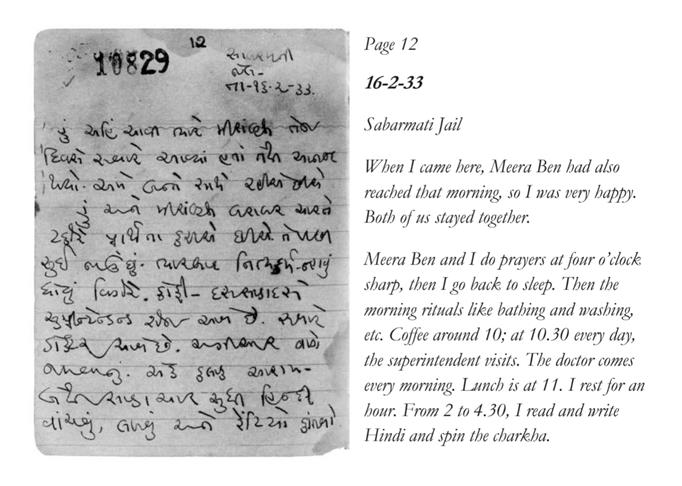 12
10829
સાબરમતી
જેલ-
તા-૧૬-૨-૩૩.
હું અહિં આવી ત્યારે મીરાંબહેન તેજ
દિવસે સવારે આવ્યાં હતાં તેથી આનંદ
થયો. અમે બન્ને સાથે રહીએ છીએ
હું અને મીરાંબહેન બરાબર ચારને
પ્રાર્થના કરીએ છીએ તે પછી
સુઈ જાઉં છું. ત્યારબાદ નિત્યકર્મ-નાવું
ધોવું વિગેરે. કોફી- દસ સાડાદસે
સુપ્રીન્ટેન્ડન્ટ રોજ આવે છે. સવારે
ડૉક્ટર આવે છે. અગીયાર વાગે
જમવાનું. એક કલાક આરામ-
બેથી સાડાચાર સુધી હિન્દી
વાંચવું, લખવું અને રેંટિયો
Page 12
16-2-33
Sabarmati Jail
When I came here, Meera Ben had also
reached that morning, so I was very happy.
Both of us stayed together.
Meera Ben and I do prayers at four o'clock
sharp, then I go back to sleep. Then the
morning rituals like bathing and washing,
etc. Coffee around 10; at 10.30 every day,
the superintendent visits. The doctor comes
every morning. Lunch is at 11. I rest for an
hour. From 2 to 4.30, I read and write
Hindi and spin the charkha.